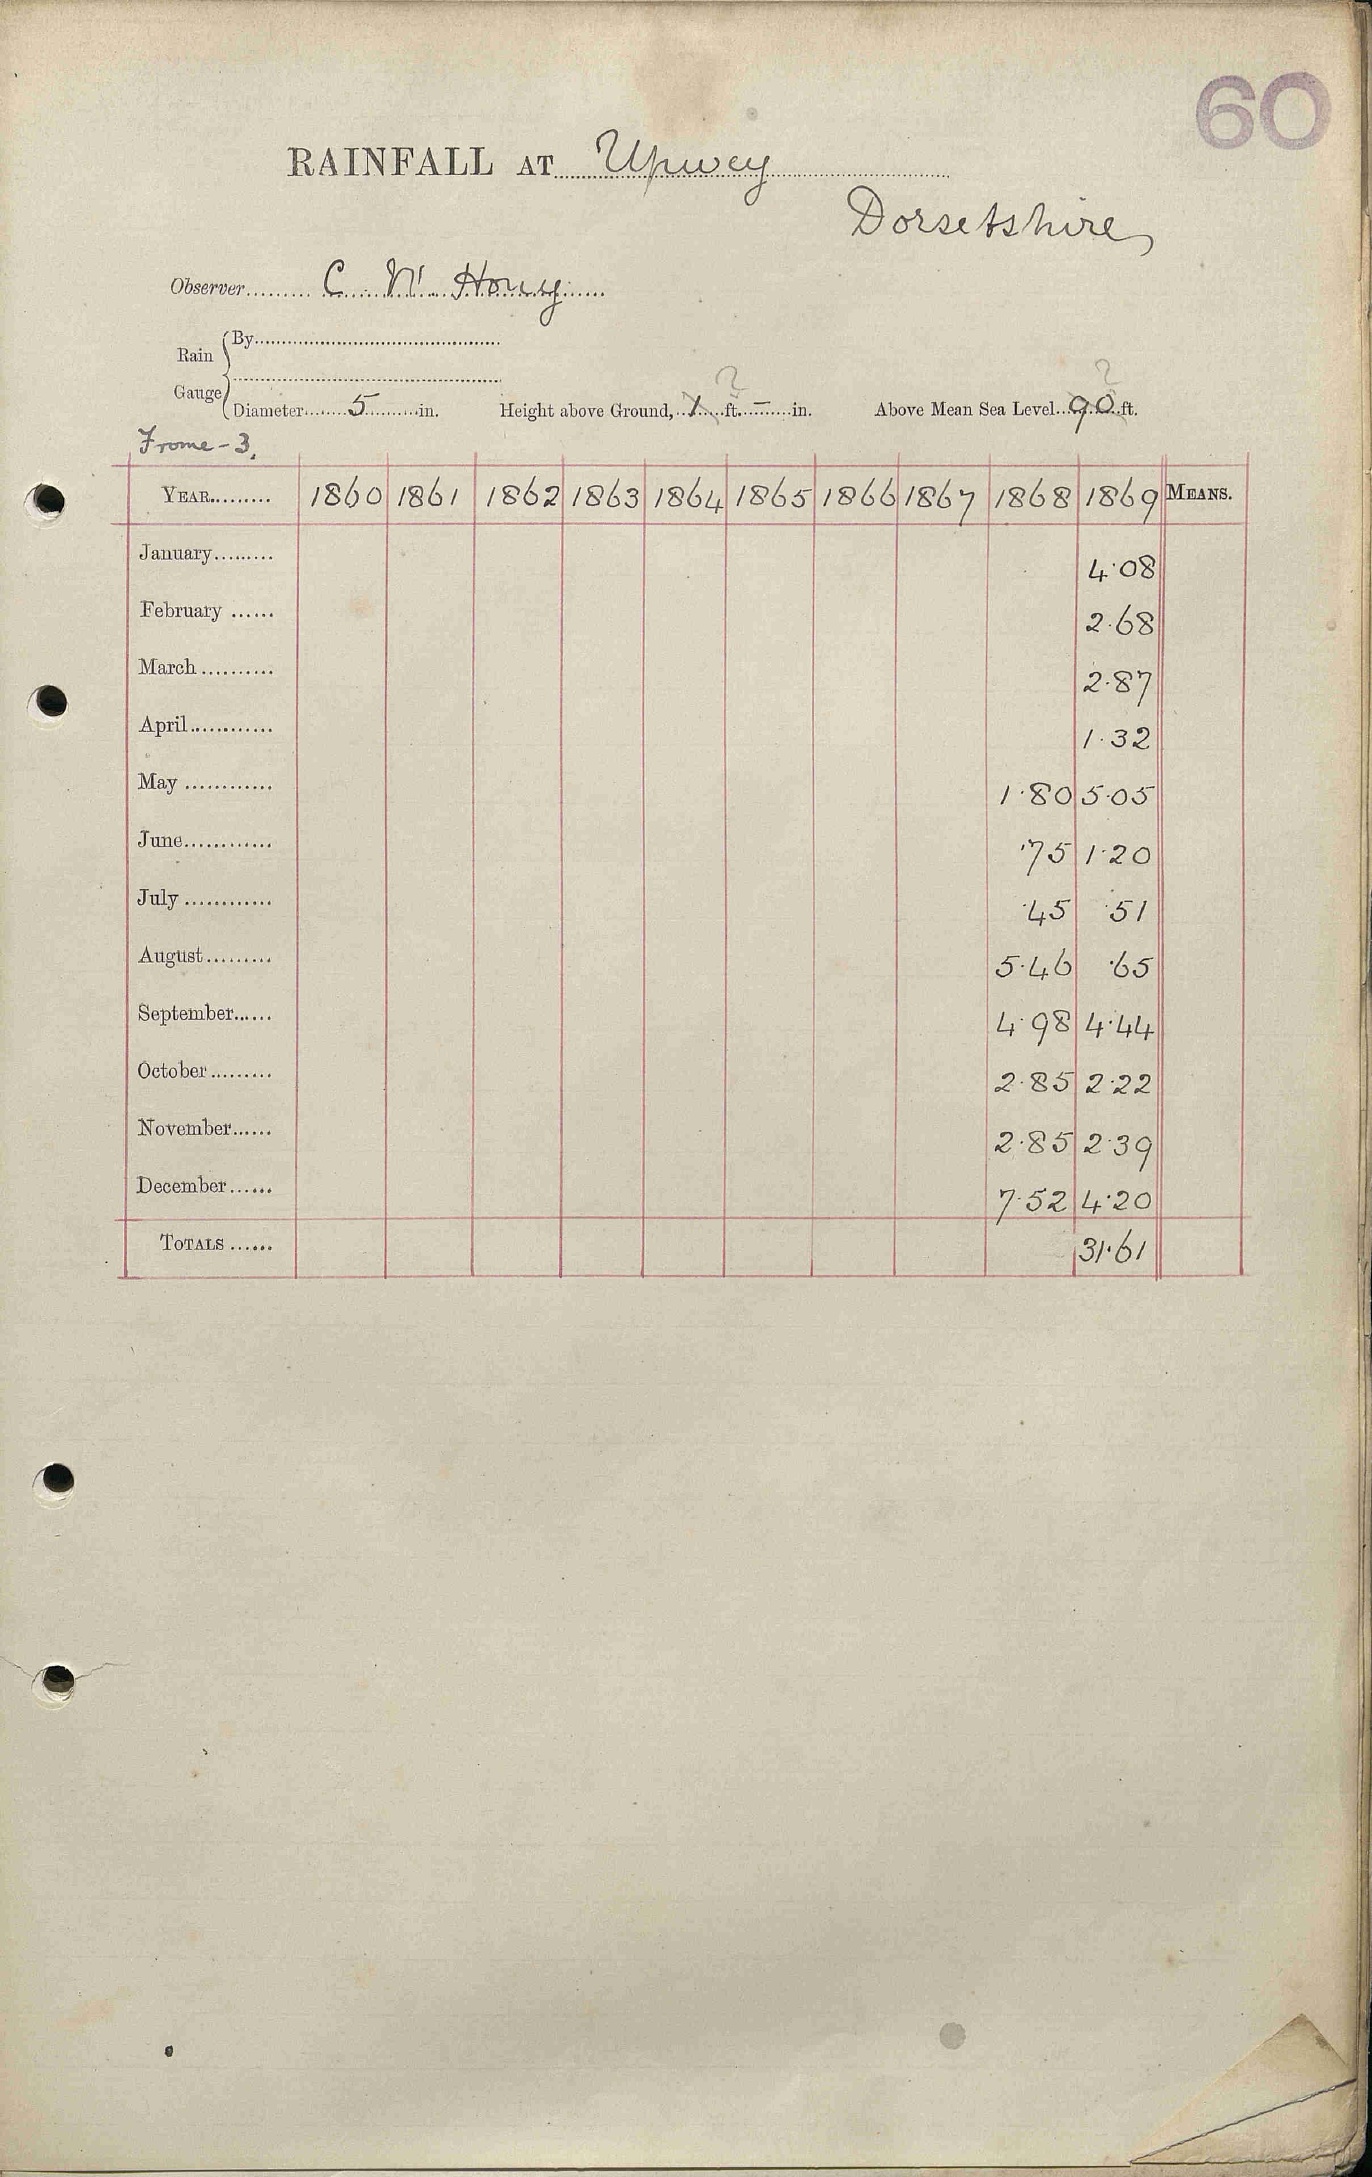 60
RAINFALL AT Upwey
Dorsetshire
Observer C
Rain Gauge
By
Diameter 5 in. Height above Ground, 1 ft. - in. Above Mean Sea Level 90 ft.
? ?
Frome - 3.
YEAR 1860 1861 1862 1863 1864 1865 1866 1867 1868 1869 MEANS.
January 4.08
February 2.68
March 2.87
April 1.32
May 1.80 5.05
June .75 1.20
July .45 .51
August 5.46 .65
September 4.98 4.44
October 2.85 2.22
November 2.85 2.39
December 7.52 4.20
TOTALS 31.61